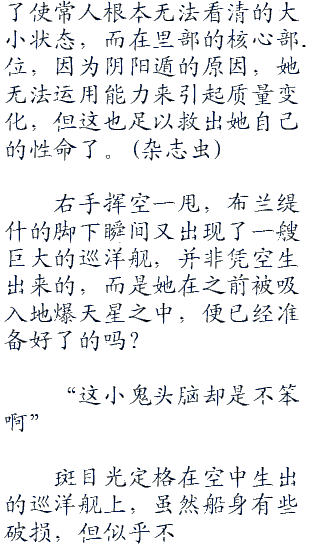 了使常人根本无法看清的大
小状态，而在里部的核心部.
位，因为阴阳遁的原因，她
无法运用能力来引起质量变
化，但这也足以救出她自己
的性命了。(杂志虫)
右手挥空一甩，布兰缇
什的脚下瞬间又出现了一艘
巨大的巡洋舰，并非凭空生
出来的，而是她在之前被吸
入地爆天星之中，便已经准
备好了的吗？
“这小鬼头脑却是不笨
啊”
斑目光定格在空中生出
的巡洋舰上，虽然船身有些
破损，但似乎不